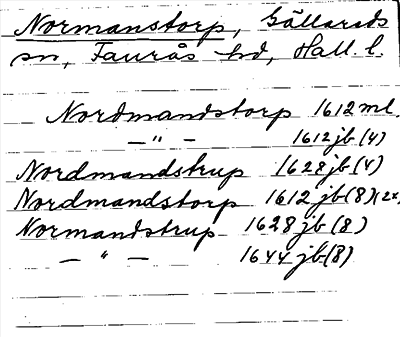 Normanstorp, Gällareds
sn, Faurås hd, Hall. l.
Nordmandstorp 1612 ml.
— " — 1612 jb (4)
Nordmandstrup 1628 jb (4)
Nordmandstorp 1612 jb (8) (2x)
Normandstrup 1628 jb (8)
— " — 1644 jb (8)